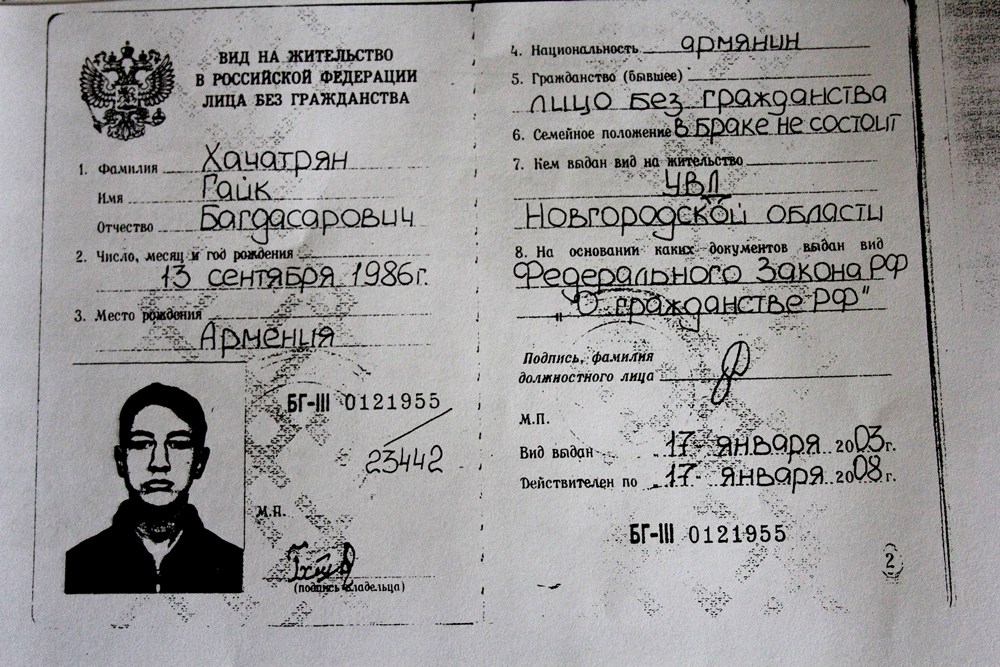 ВИД НА ЖИТЕЛЬСТВО
В РОССИЙСКОЙ ФЕДЕРАЦИИ
ЛИЦА БЕЗ ГРАЖДАНСТВА
1. Фамилия Хачатрян
Имя Гайк
Отчество Багдасарович
2. Число, месяц и год рождения
13 сентября 1986г.
3. Место рождения
Армения
БГ-III 0121955
23442
М.П.
(подпись владельца)
4. Национальность армянин
5. Гражданство (бывшее)
лицо без гражданства
6. Семейное положение в браке не состоит
7. Кем выдан вид на жительство
УВД
Новгородской области
8. На основании каких документов выдан вид
Федерального Закона РФ
„О гражданстве РФ"
Подпись, фамилия
должностного лица
М.П.
Вид выдан 17 января 2003г.
Действителен по 17 января 2008г.
БГ-III 0121955
2